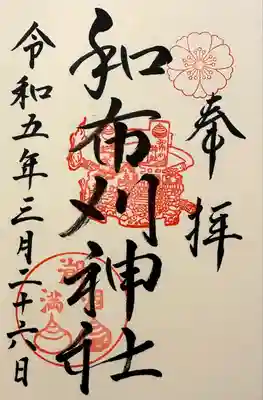 奉拝
和布刈神社
令和五年三月二十六日